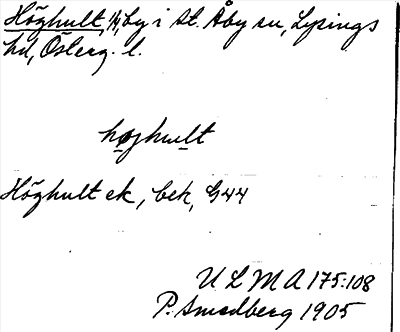 Höghult, by i St. Åby sn, Lysings
hd, Österg. l.
høghult
Höghult ek, bek, G44
U L M A 175:108
P. Smedberg 1905